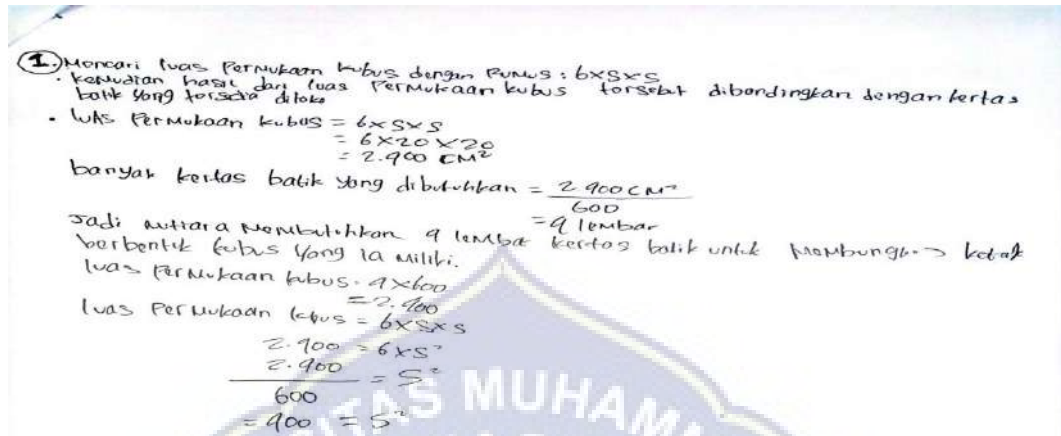 1. Mencari luas Permukaan kubus dengan Rumus : 6xSxS
· kemudian hasil dari luas Permukaan kubus tersebut dibandingkan dengan kertas
batik yang tersedia ditoko
· luas Permukaan kubus = 6xSxS
= 6x20x20
= 2.400 CM²
banyak kertas batik yang dibutuhkan = 2.400 CM²
600
= 4 lembar
Jadi mutiara Membutuhkan 4 lembar kertas batik untuk Membungkus kotak
berbentuk kubus yang ia miliki.
luas Permukaan kubus = 4x600
= 2.400
luas Permukaan kubus = 6xSxS
2.400 = 6xS²
2.400 = S²
600
= 400 = S²
ITAS MUHAM